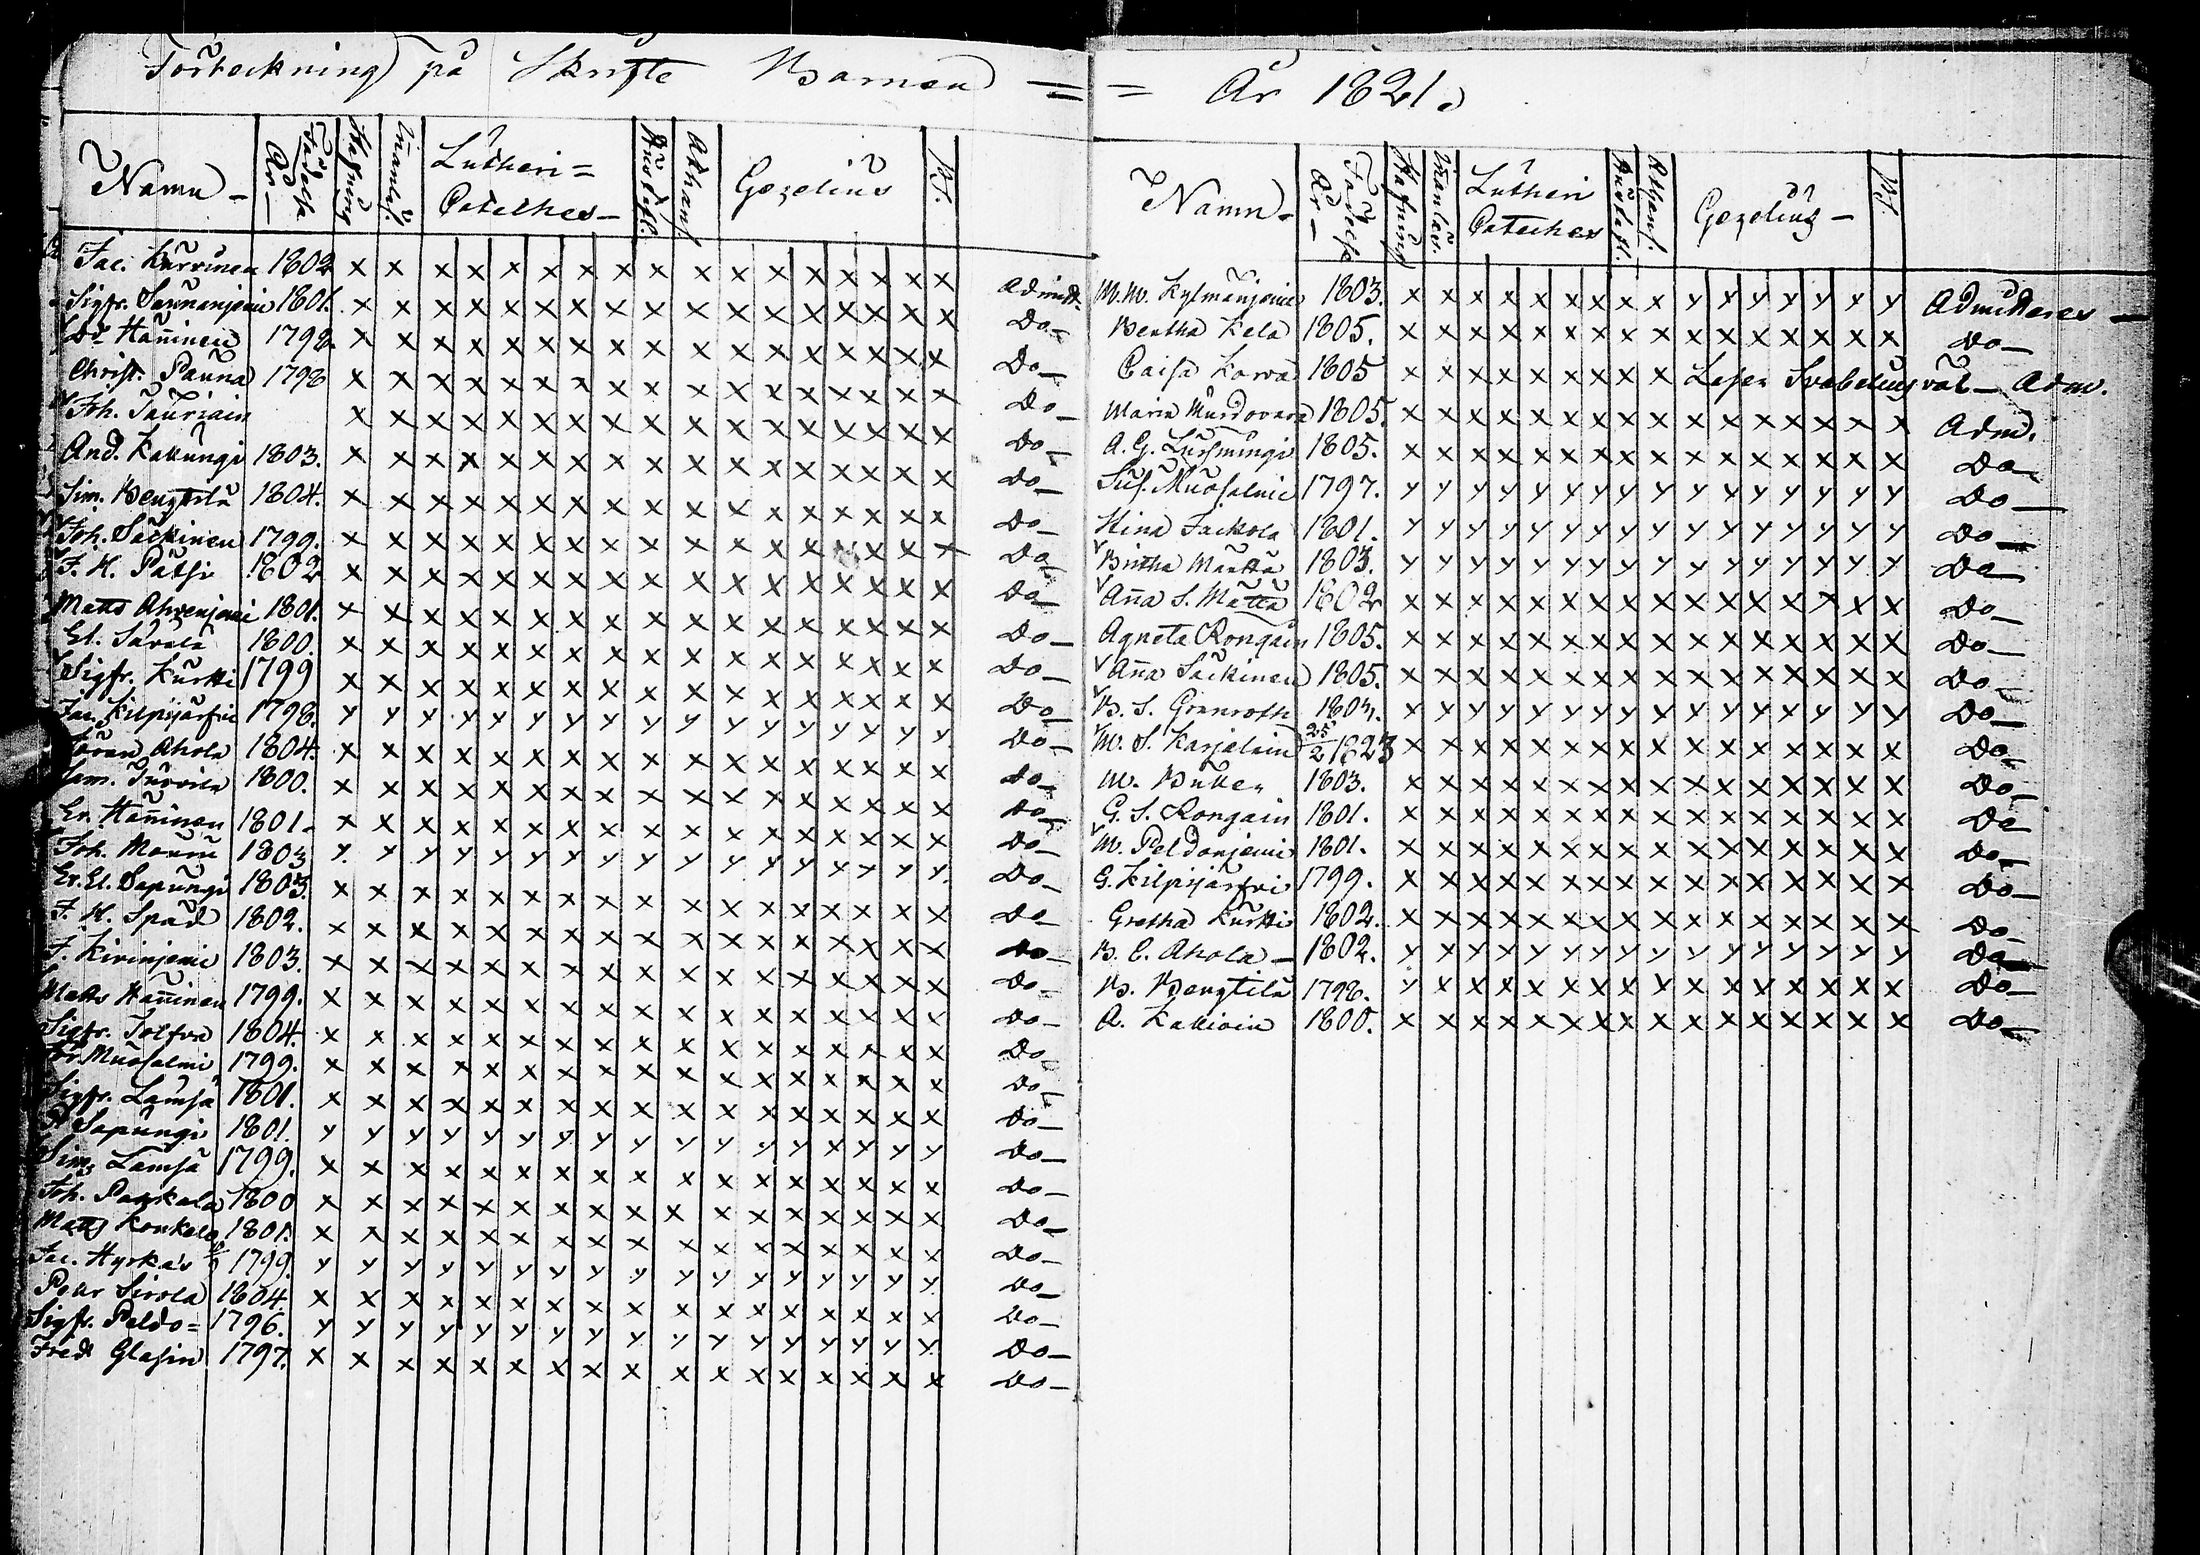 Förteckning på Skrifte Barnen == År 1821.
Namn Födelse År Stafning Inanläs. Lutheri Cateches Hustafl. Athanas. Gezelius
Jac. Kurvinen 1802 x x x x x x x x x x x x x x x x x Admitt.
Sigfr. Saunanjemi 1801. x x x x x x x x x x x x x x x x x Do
Do Hänninen 1798 x x x x x x x x x x x x x x x x x Do
Christ. Pauna 1798 x x x x x x x x x x x x x x x x x Do
Joh. Tauriain x x x x x x x x x x x x x x x x x Do
And. Kallungi 1803. x x x x x x x x x x x x x x x x x Do
Sim. Bengtilä 1804. x x x x x x x x x x x x x x x x x Do
Joh. Säckinen 1799. x x x x x x x x x x x x x x x x x Do
J. H. Pätsi 1802 x x x x x x x x x x x x x x x x x Do
Matts Ahvenjemi 1801. x x x x x x x x x x x x x x x x x Do
El. Särelä 1800. x x x x x x x x x x x x x x x x x Do
Sigfr. Kurtti 1799 x x x x x x x x x x x x x x x x x Do
Jac. Kilpijärfvi 1798. y y y y y y y y y y y y y y y y y Do
Göran Ahola 1804. x x x x x x x x x x x x x x x x x Do
Sam. 1800. x x x x x x x x x x x x x x x x x Do
Er. Hänninen 1801 x x x x x x x x x x x x x x x x x Do
Joh. Mouru 1803 y y y y y y y y y y y y y y y y y Do
Er. El. Sapungi 1803. x x x x x x x x x x x x x x x x x Do
J. H. Späd 1802. x x x x x x x x x x x x x x x x x Do
J. Kivinjemi 1803. x x x x x x x x x x x x x x x x x Do
Matts Hänninen 1799. x x x x x x x x x x x x x x x x x Do
Sigfr. Tolfva 1804. x x x x x x x x x x x x x x x x x Do
Muosalmi 1799. x x x x x x x x x x x x x x x x x Do
Sigfr. Lämsä 1801. x x x x x x x x x x x x x x x x x Do
Sapungi 1801. y y y y y y y y y y y y y y y y y Do
Sim. Lämsä 1799. x x x x x x x x x x x x x x x x x Do
Joh. Paukala 1800 x x x x x x x x x x x x x x x x x Do
Matts Konkela 1801. x x x x x x x x x x x x x x x x x Do
Jac. Hyrkäs 1799. y y y y y y y y y y y y y y y y y Do
Pehr Sirola 1804. x x x x x x x x x x x x x x x x x Do
Sigfr. Peldo= 1796. y y y y y y y y y y y y y y y y y Do
Fred Glasin 1797. x x x x x x x x x x x x x x x x x Do
Namn Födelse År Stafning Inanläs. Lutheri Cateches Hustafl. Athans. Gezelius
M. M. Kylmänjemi 1803. x x x x x x x x x y y y y y y y Admitteras
Beatha Kela 1805. x x x x x x x x x x x x x x x x Do
Caisa Korva 1805 x x x x x x x x x Läser Svebelius väl Adm.
Maria Murdovara 1805. x x x x x x x x x x x x x x x x Adm.
A. G. 1805. x x x x x x x x x x x x x x x x Do
Sus. Muosalmi 1797. y y y y y y y y y y y y y y y y Do
Stina Jackola 1801. y y y y y y y y y y y y y y y y Do
Britha Määttä 1803. y y y y y y y y y y y y y y y y Do
Aña S. Mättä 1802 x x x x x x x x x x x x x x x x Do
Agneta Rongain 1805. x x x x x x x x x x x x x x x x Do
Aña Säckinen 1805. x x x x x x x x x x x x x x x x Do
B. S. Granroth x y y y y y y y y y y y y y y y Do
M. S. Karjalain 25/2 1823 x x x x x x x x x x x x x x x x Do
M. 1803. x x x x x x x x x x x x x x x x Do
G. S. Rongain 1801. x x x x x x x x x x x x x x x x Do
M. Peldonjemi 1801. x x x x x x x x x x x x x x x x Do
G. Kilpijärfvi 1799. x x x x x x x x x x x x x x x x Do
Gretha Kurtti 1802. x x x x x x x x x x x x x x x x Do
B. C. Ahola 1802. y y y y y y y y y y y y y y y y Do
B. Bengtilä 1798. y x x x x x x x x x x x x x x x Do
A. Kallioin 1800. x x x x x x x x x x x x x x x x Do